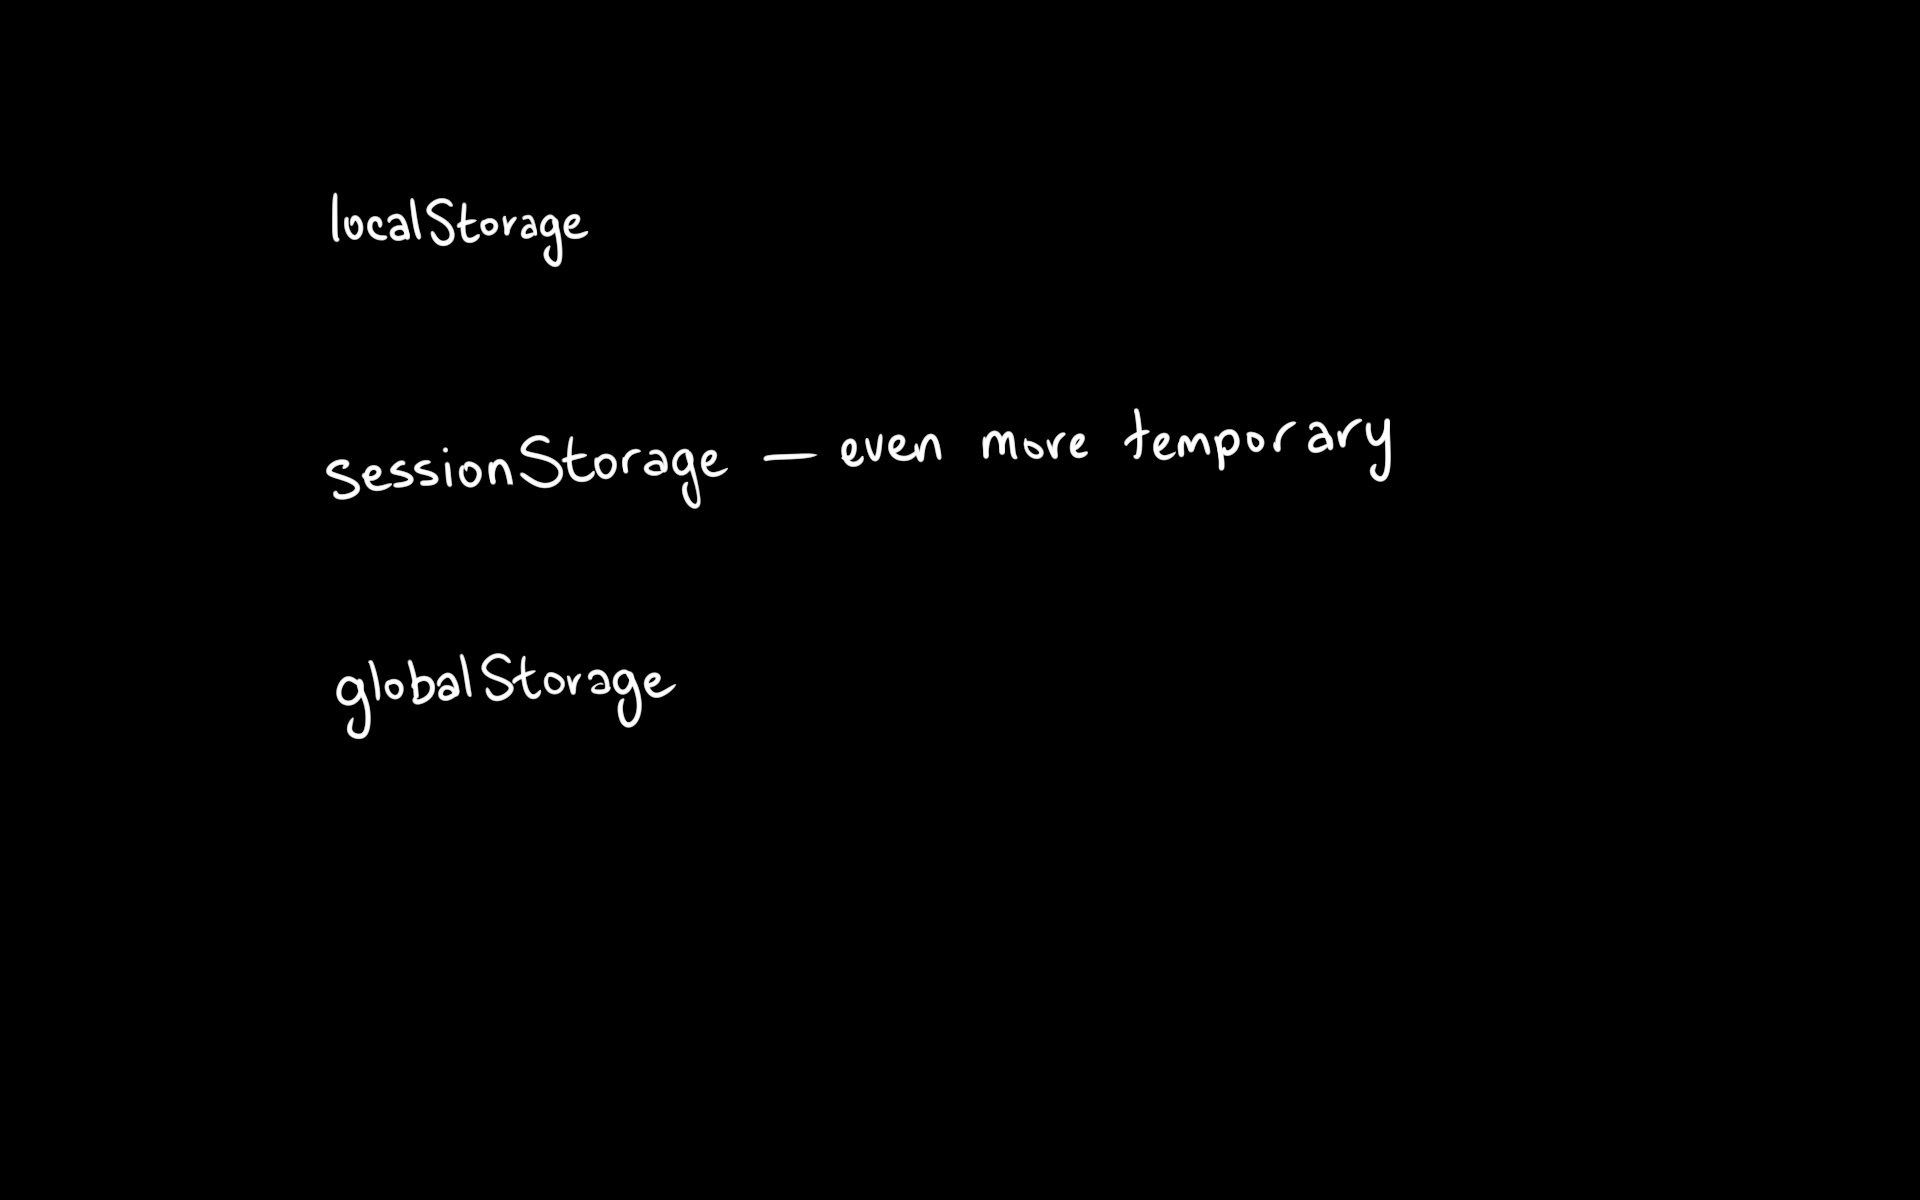 localStorage
sessionStorage — even more temporary
globalStorage